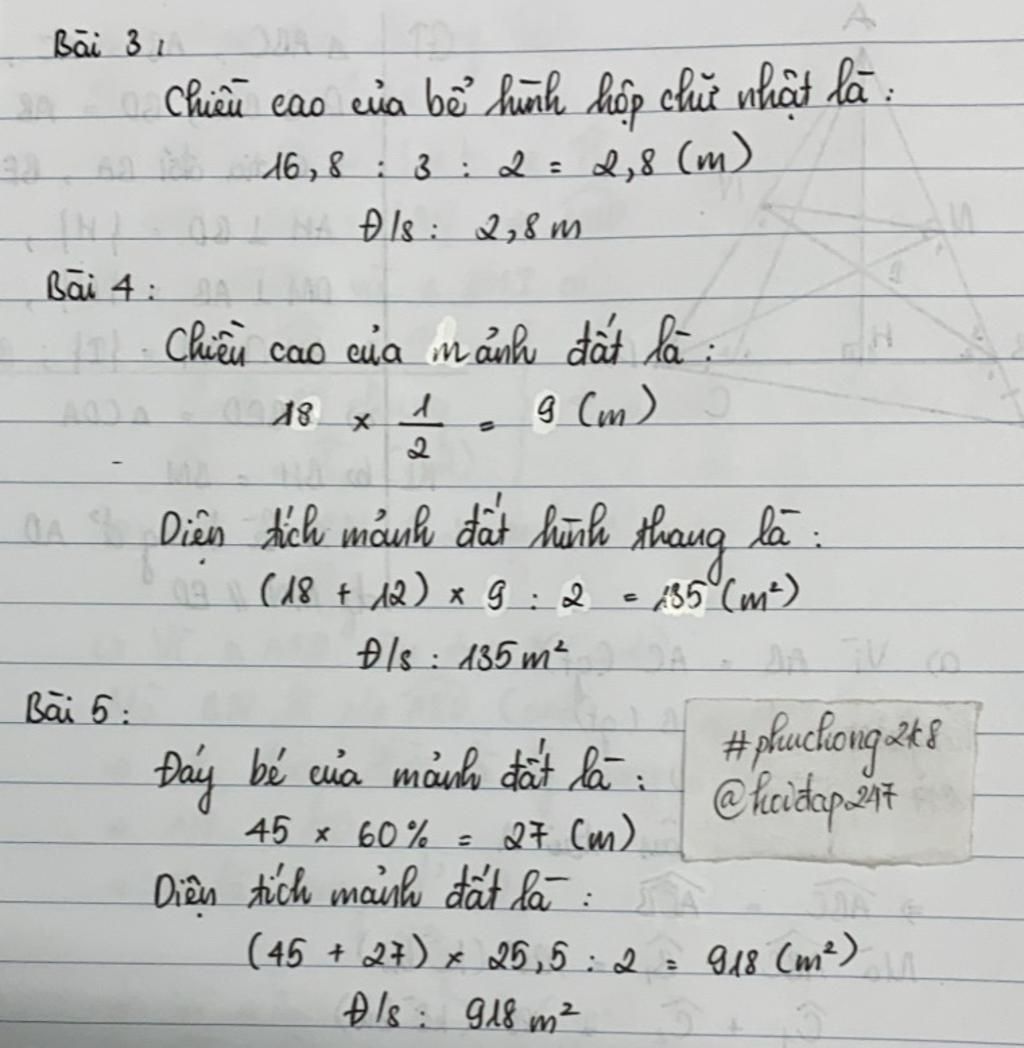 Bài 3:
Chiều cao của bể hình hộp chữ nhật là:
16,8 : 3 : 2 = 2,8 (m)
Đ/s: 2,8 m
Bài 4:
Chiều cao của mảnh đất là:
18 × 1/2 = 9 (m)
Diện tích mảnh đất hình thang là:
(18 + 12) × 9 : 2 = 135 (m²)
Đ/s: 135 m²
Bài 5:
Đáy bé của mảnh đất là:
45 × 60% = 27 (m)
Diện tích mảnh đất là:
(45 + 27) × 25,5 : 2 = 918 (m²)
Đ/s: 918 m²
#phuchong2k8
@hoidap247